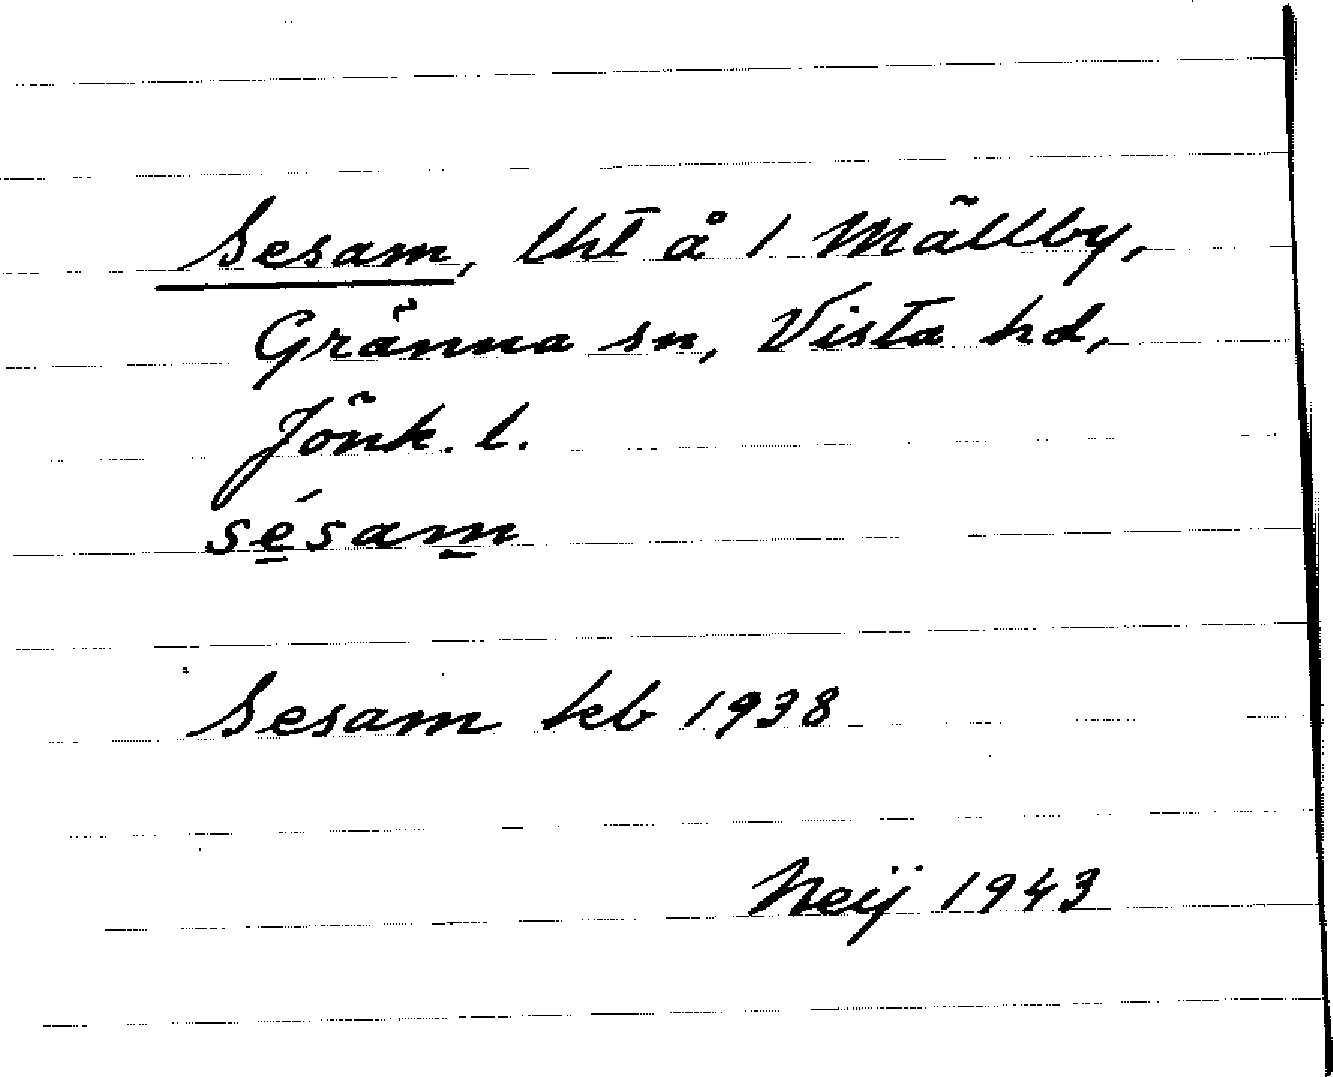 Sesam, lht å 1 Mällby,
Gränna sn, Vista hd,
Jönk. l.
sésam
Sesam keb 1938
Neij 1943